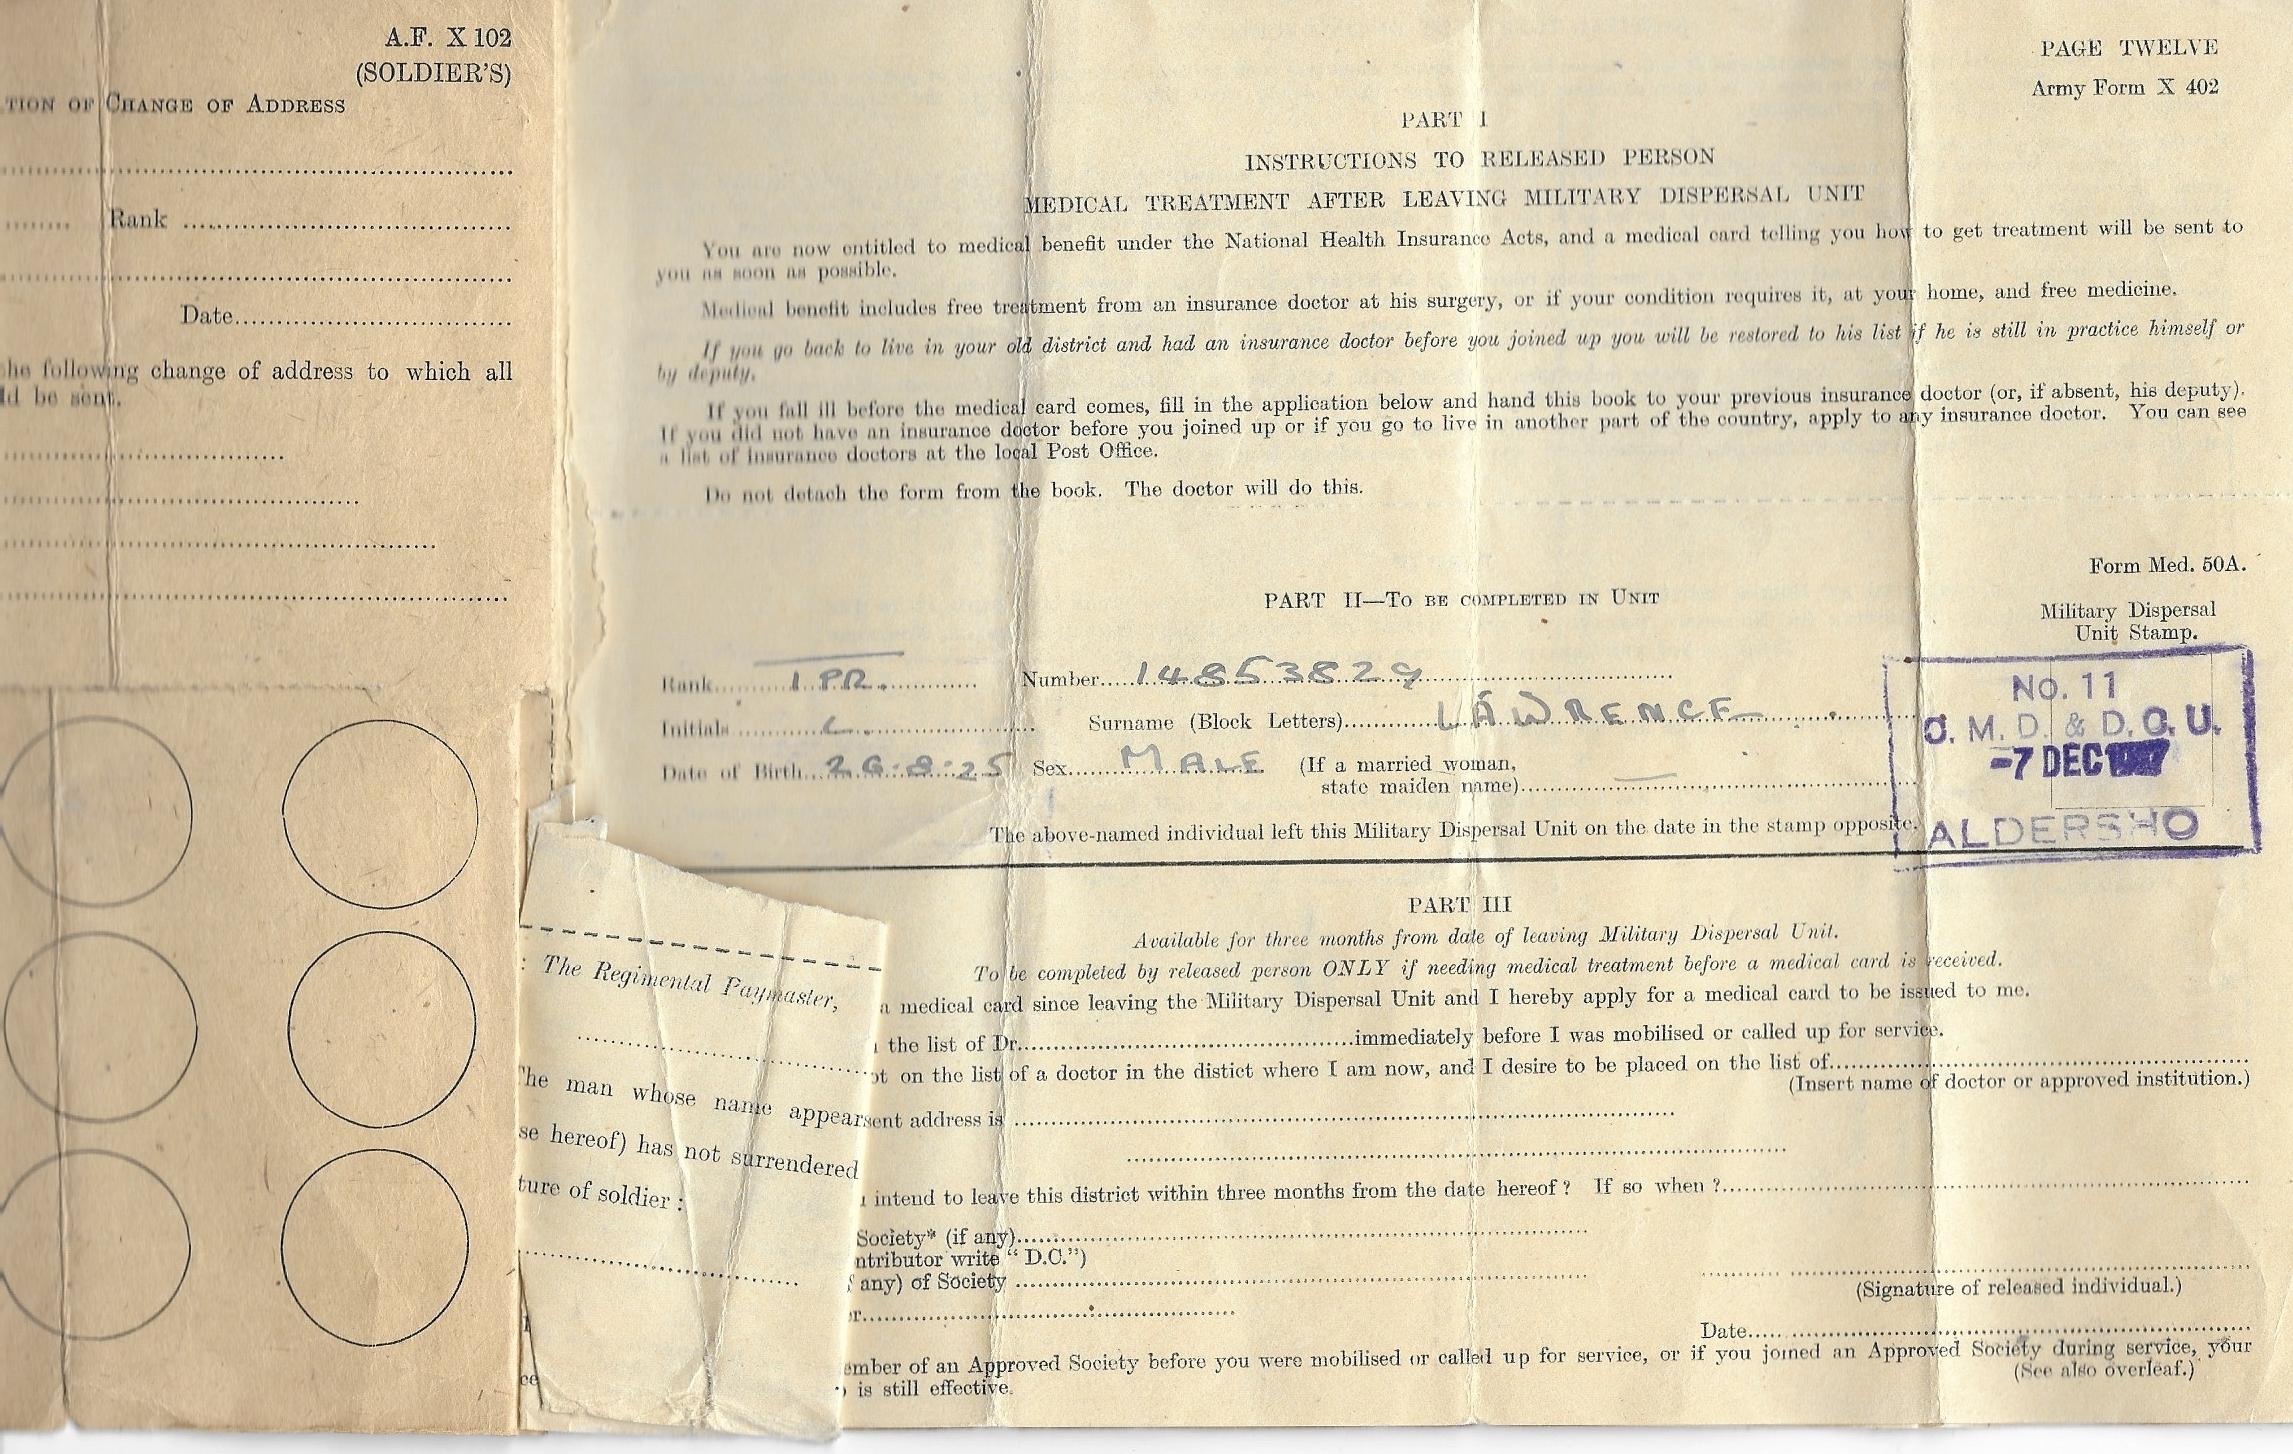 A.F. X 102
(SOLDIER'S)
TION OF CHANGE OF ADDRESS
Rank
Date
he following change of address to which all
ld be sent.
PAGE TWELVE
Army Form X 402
PART I
INSTRUCTIONS TO RELEASED PERSON
MEDICAL TREATMENT AFTER LEAVING MILITARY DISPERSAL UNIT
You are now entitled to medical benefit under the National Health Insurance Acts, and a medical card telling you how to get treatment will be sent to
you as soon as possible.
Medical benefit includes free treatment from an insurance doctor at his surgery, or if your condition requires it, at your home, and free medicine.
If you go back to live in your old district and had an insurance doctor before you joined up you will be restored to his list if he is still in practice himself or
by deputy.
If you fall ill before the medical card comes, fill in the application below and hand this book to your previous insurance doctor (or, if absent, his deputy).
If you did not have an insurance doctor before you joined up or if you go to live in another part of the country, apply to any insurance doctor. You can see
a list of insurance doctors at the local Post Office.
Do not detach the form from the book. The doctor will do this.
Form Med. 50A.
PART II—TO BE COMPLETED IN UNIT
Military Dispersal
Unit Stamp.
Rank TPR. Number 14853829
Initials L. Surname (Block Letters) LAWRENCE
Date of Birth 26.8.25 Sex MALE (If a married woman,
state maiden name)
No. 11
C. M. D. & D. C. U.
-7 DEC
ALDERSHO
The above-named individual left this Military Dispersal Unit on the date in the stamp opposite.
PART III
Available for three months from date of leaving Military Dispersal Unit.
To be completed by released person ONLY if needing medical treatment before a medical card is received.
a medical card since leaving the Military Dispersal Unit and I hereby apply for a medical card to be issued to me.
the list of Dr. immediately before I was mobilised or called up for service.
ot on the list of a doctor in the distict where I am now, and I desire to be placed on the list of
(Insert name of doctor or approved institution.)
sent address is
intend to leave this district within three months from the date hereof? If so when?
Society* (if any)
ntributor write "D.C.")
any) of Society
(Signature of released individual.)
Date
ember of an Approved Society before you were mobilised or called up for service, or if you joined an Approved Society during service, your
is still effective.
(See also overleaf.)
: The Regimental Paymaster,
The man whose name appear
se hereof) has not surrendered
ture of soldier :